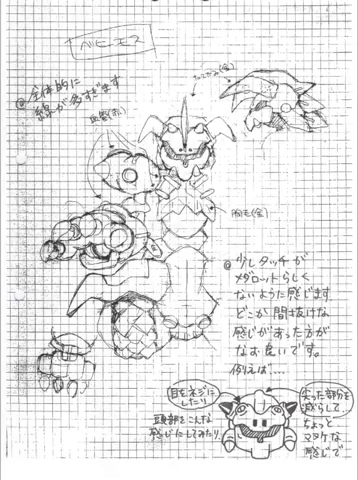 ベヒーモス
@ 全体的に
線が多すぎます
たてがみ(金)
胸毛(金)
@ 少しタッチが
メダロットらしく
ないように感じます
どこか間抜けな
感じがあった方が
なお良いです。
例えば....
目をネジに
したり
頭部をこんな
感じにしてみたり
尖った部分を
減らして
ちょっと
マヌケな
感じで